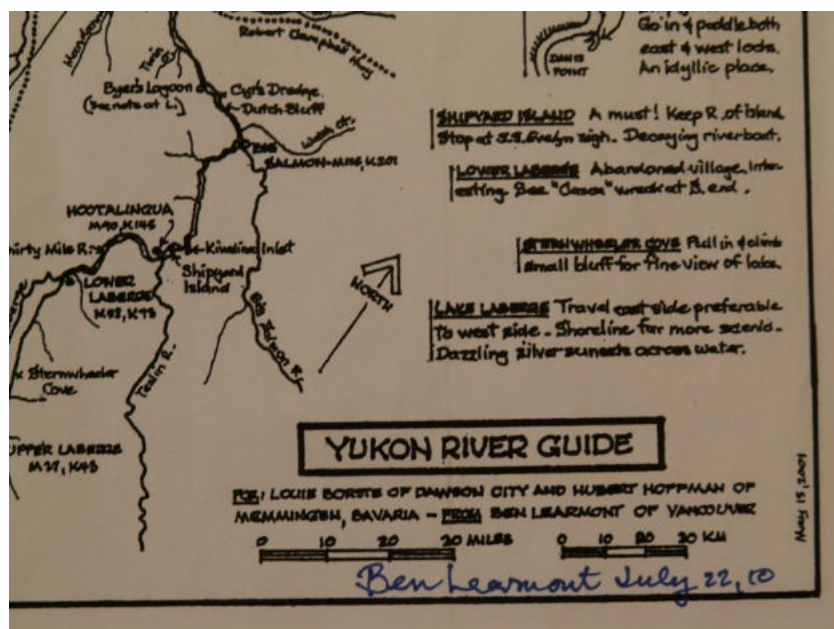 Robert Campbell Hwy
Twin
Byer's Lagoon
(See note at L.)
Cyr's Dredge
Dutch Bluff
BIG
SALMON-M126, K201
HOOTALINQUA
M90, K145
Thirty Mile R.
Kiwalina Inlet
Shipyard
Island
LOWER
LABERGE
M58, K93
Teslin R.
Big Salmon R.
Sternwheeler
Cove
UPPER LABERGE
M27, K43
NORTH
DAVIS
POINT
Go in & paddle both
east & west locks.
An idyllic place.
SHIPYARD ISLAND A must! Keep R. of island
Stop at S.S. Evelyn sign. Decaying riverboat.
LOWER LABERGE Abandoned village, inter-
esting. See "Casca" wreck at S. end.
STERNWHEELER COVE Pull in & climb
small bluff for fine view of lake.
LAKE LABERGE Travel east side preferable
to west side - Shoreline far more scenic.
Dazzling silver sunsets across water.
YUKON RIVER GUIDE
FOR: LOUIE BORSTE OF DAWSON CITY AND HUBERT HOFFMAN OF
MEMMINGEN, BAVARIA - FROM BEN LEARMONT OF VANCOUVER
0 10 20 30 MILES
0 10 20 30 KM
Ben Learmont July 22, 10
May 15, 2001